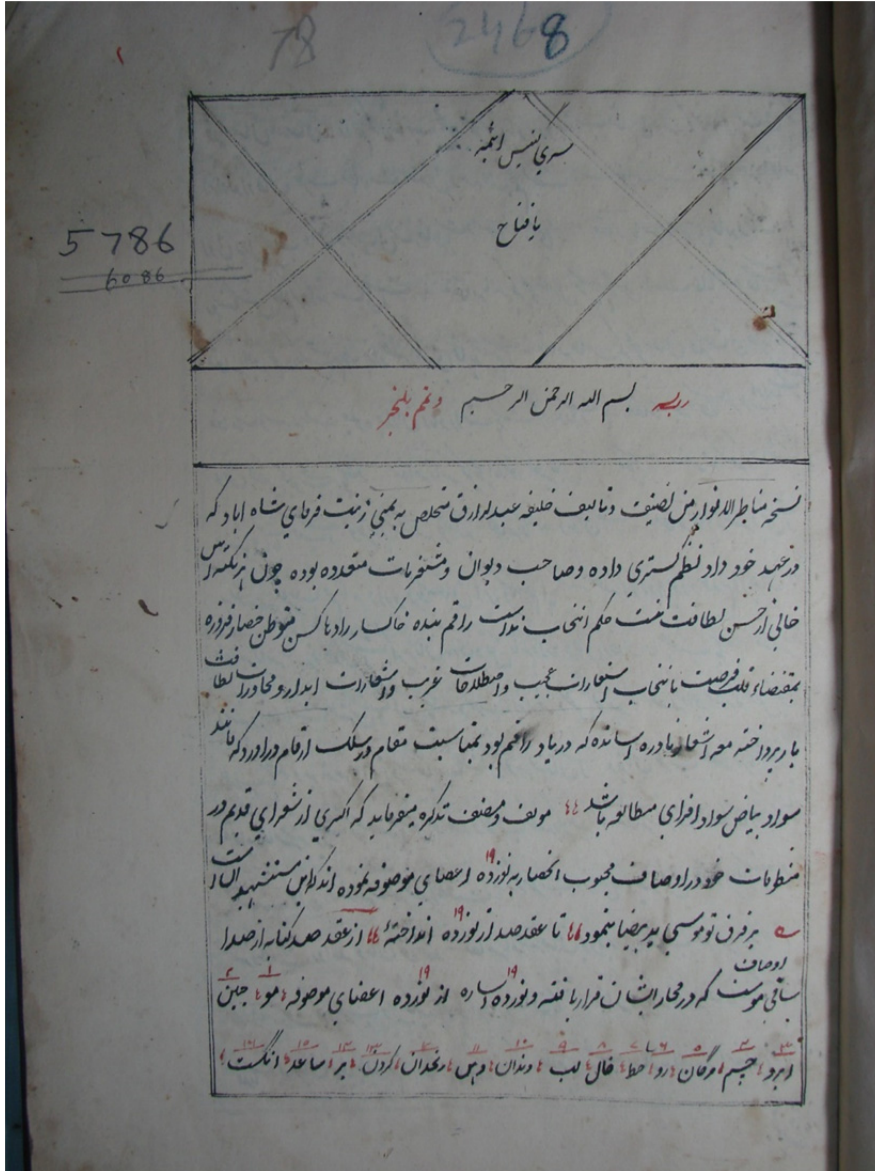 78
2468
سري نفيس ائمه
يا فتاح
5786
6086
ربيسر بسم الله الرحمن الرحيم وتمم بالخير
نسخه مناظر الانوار من تصنيف و تاليف خليفه عبدالرزاق متخلص به يمني زينت فرماي شاه اباد كه
در عهد خود داد نظم گستري داده و صاحب ديوان و متعدده بوده چون هر نكته اش
خالي از حسن لطافت نيست حكم انتخاب نداشت راقم بنده خاكسار متوطن حصار فيروزه
بمقتضاء قلت فرصت بانتخاب استعارات عجيب و اصطلاحات غريب و اشعارات ابدار و محاورات لطافت
بار پرداخته معه اشعار نادره اساتذه كه در ياد راقم بود بمناسبت مقام در سلك ارقام دراورد كه مانند
سواد بياض سواد افزاي مطالعه باشد مولف و مصنف تذكره ميفرمايد كه اكثري از شعراي قديم در
منظومات خود در اوصاف محبوب انحصار به نوزده ۱۹ اعضاي موصوفه نموده اند
بر فرق تو موسي يد بيضا بنمود تا عقد صد از نوزده ۱۹ انداخته از عقد صد كنايه از صد
اوصاف
باقي موست كه در محاورات شان قرار يافته و نوزده ۱۹ اشاره از نوزده ۱۹ اعضاي موصوفه مو ۱ جبين ۲
ابرو ۳ چشم ۴ مژگان ۵ رو ۶ خط ۷ خال ۸ لب ۹ دندان ۱۰ دهن ۱۱ زنخدان ۱۲ گردن ۱۳ بر ۱۴ ساعد ۱۵ انگشت ۱۶